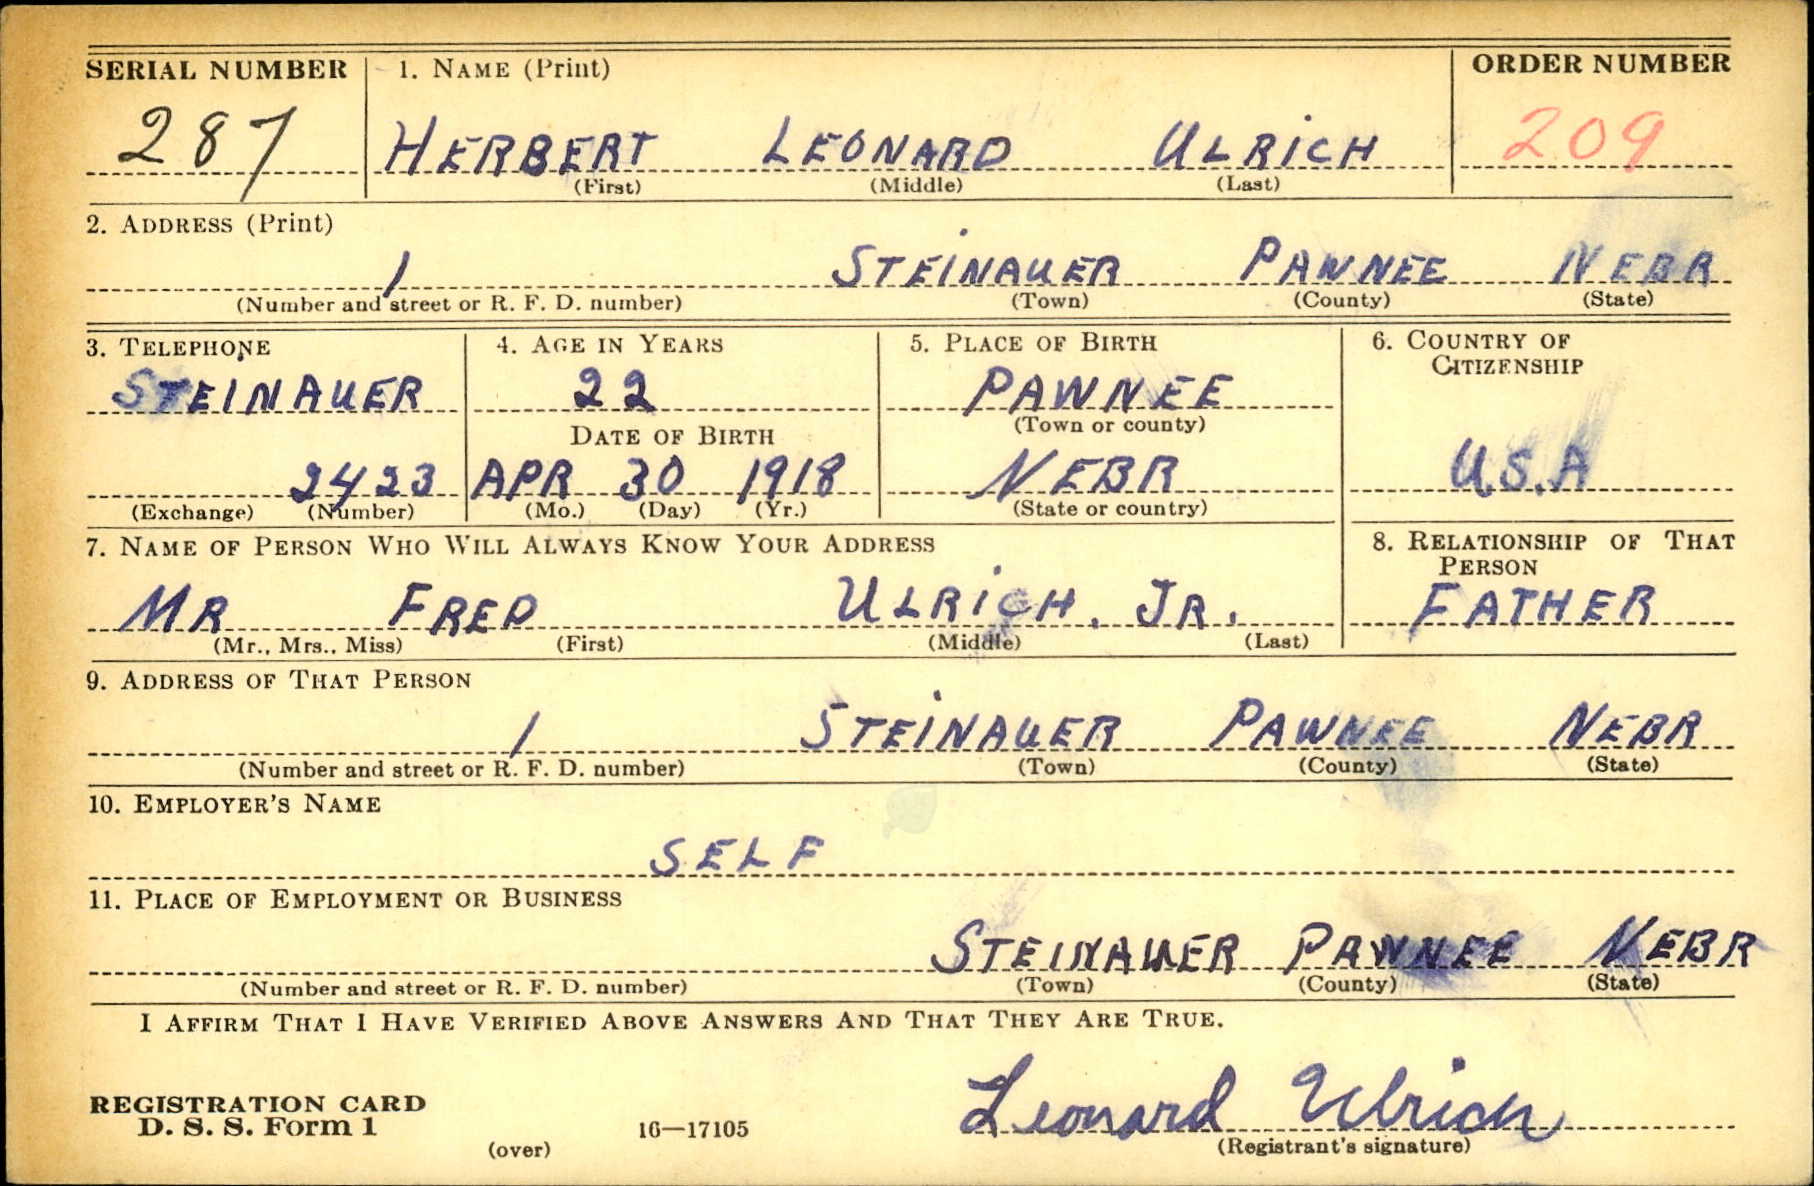 SERIAL NUMBER 1. NAME (Print) ORDER NUMBER
287 HERBERT LEONARD ULRICH 209
(First) (Middle) (Last)
2. ADDRESS (Print)
1 STEINAUER PAWNEE NEBR
(Number and street or R. F. D. number) (Town) (County) (State)
3. TELEPHONE 4. AGE IN YEARS 5. PLACE OF BIRTH 6. COUNTRY OF
CITIZENSHIP
STEINAUER 22 PAWNEE
DATE OF BIRTH (Town or county)
2423 APR 30 1918 NEBR U.S.A
(Exchange) (Number) (Mo.) (Day) (Yr.) (State or country)
7. NAME OF PERSON WHO WILL ALWAYS KNOW YOUR ADDRESS 8. RELATIONSHIP OF THAT
PERSON
MR FRED ULRICH. JR. FATHER
(Mr., Mrs., Miss) (First) (Middle) (Last)
9. ADDRESS OF THAT PERSON
1 STEINAUER PAWNEE NEBR
(Number and street or R. F. D. number) (Town) (County) (State)
10. EMPLOYER'S NAME
SELF
11. PLACE OF EMPLOYMENT OR BUSINESS
STEINAUER PAWNEE NEBR
(Number and street or R. F. D. number) (Town) (County) (State)
I AFFIRM THAT I HAVE VERIFIED ABOVE ANSWERS AND THAT THEY ARE TRUE.
REGISTRATION CARD
D. S. S. Form 1 16—17105 Leonard Ulrich
(over) (Registrant's signature)